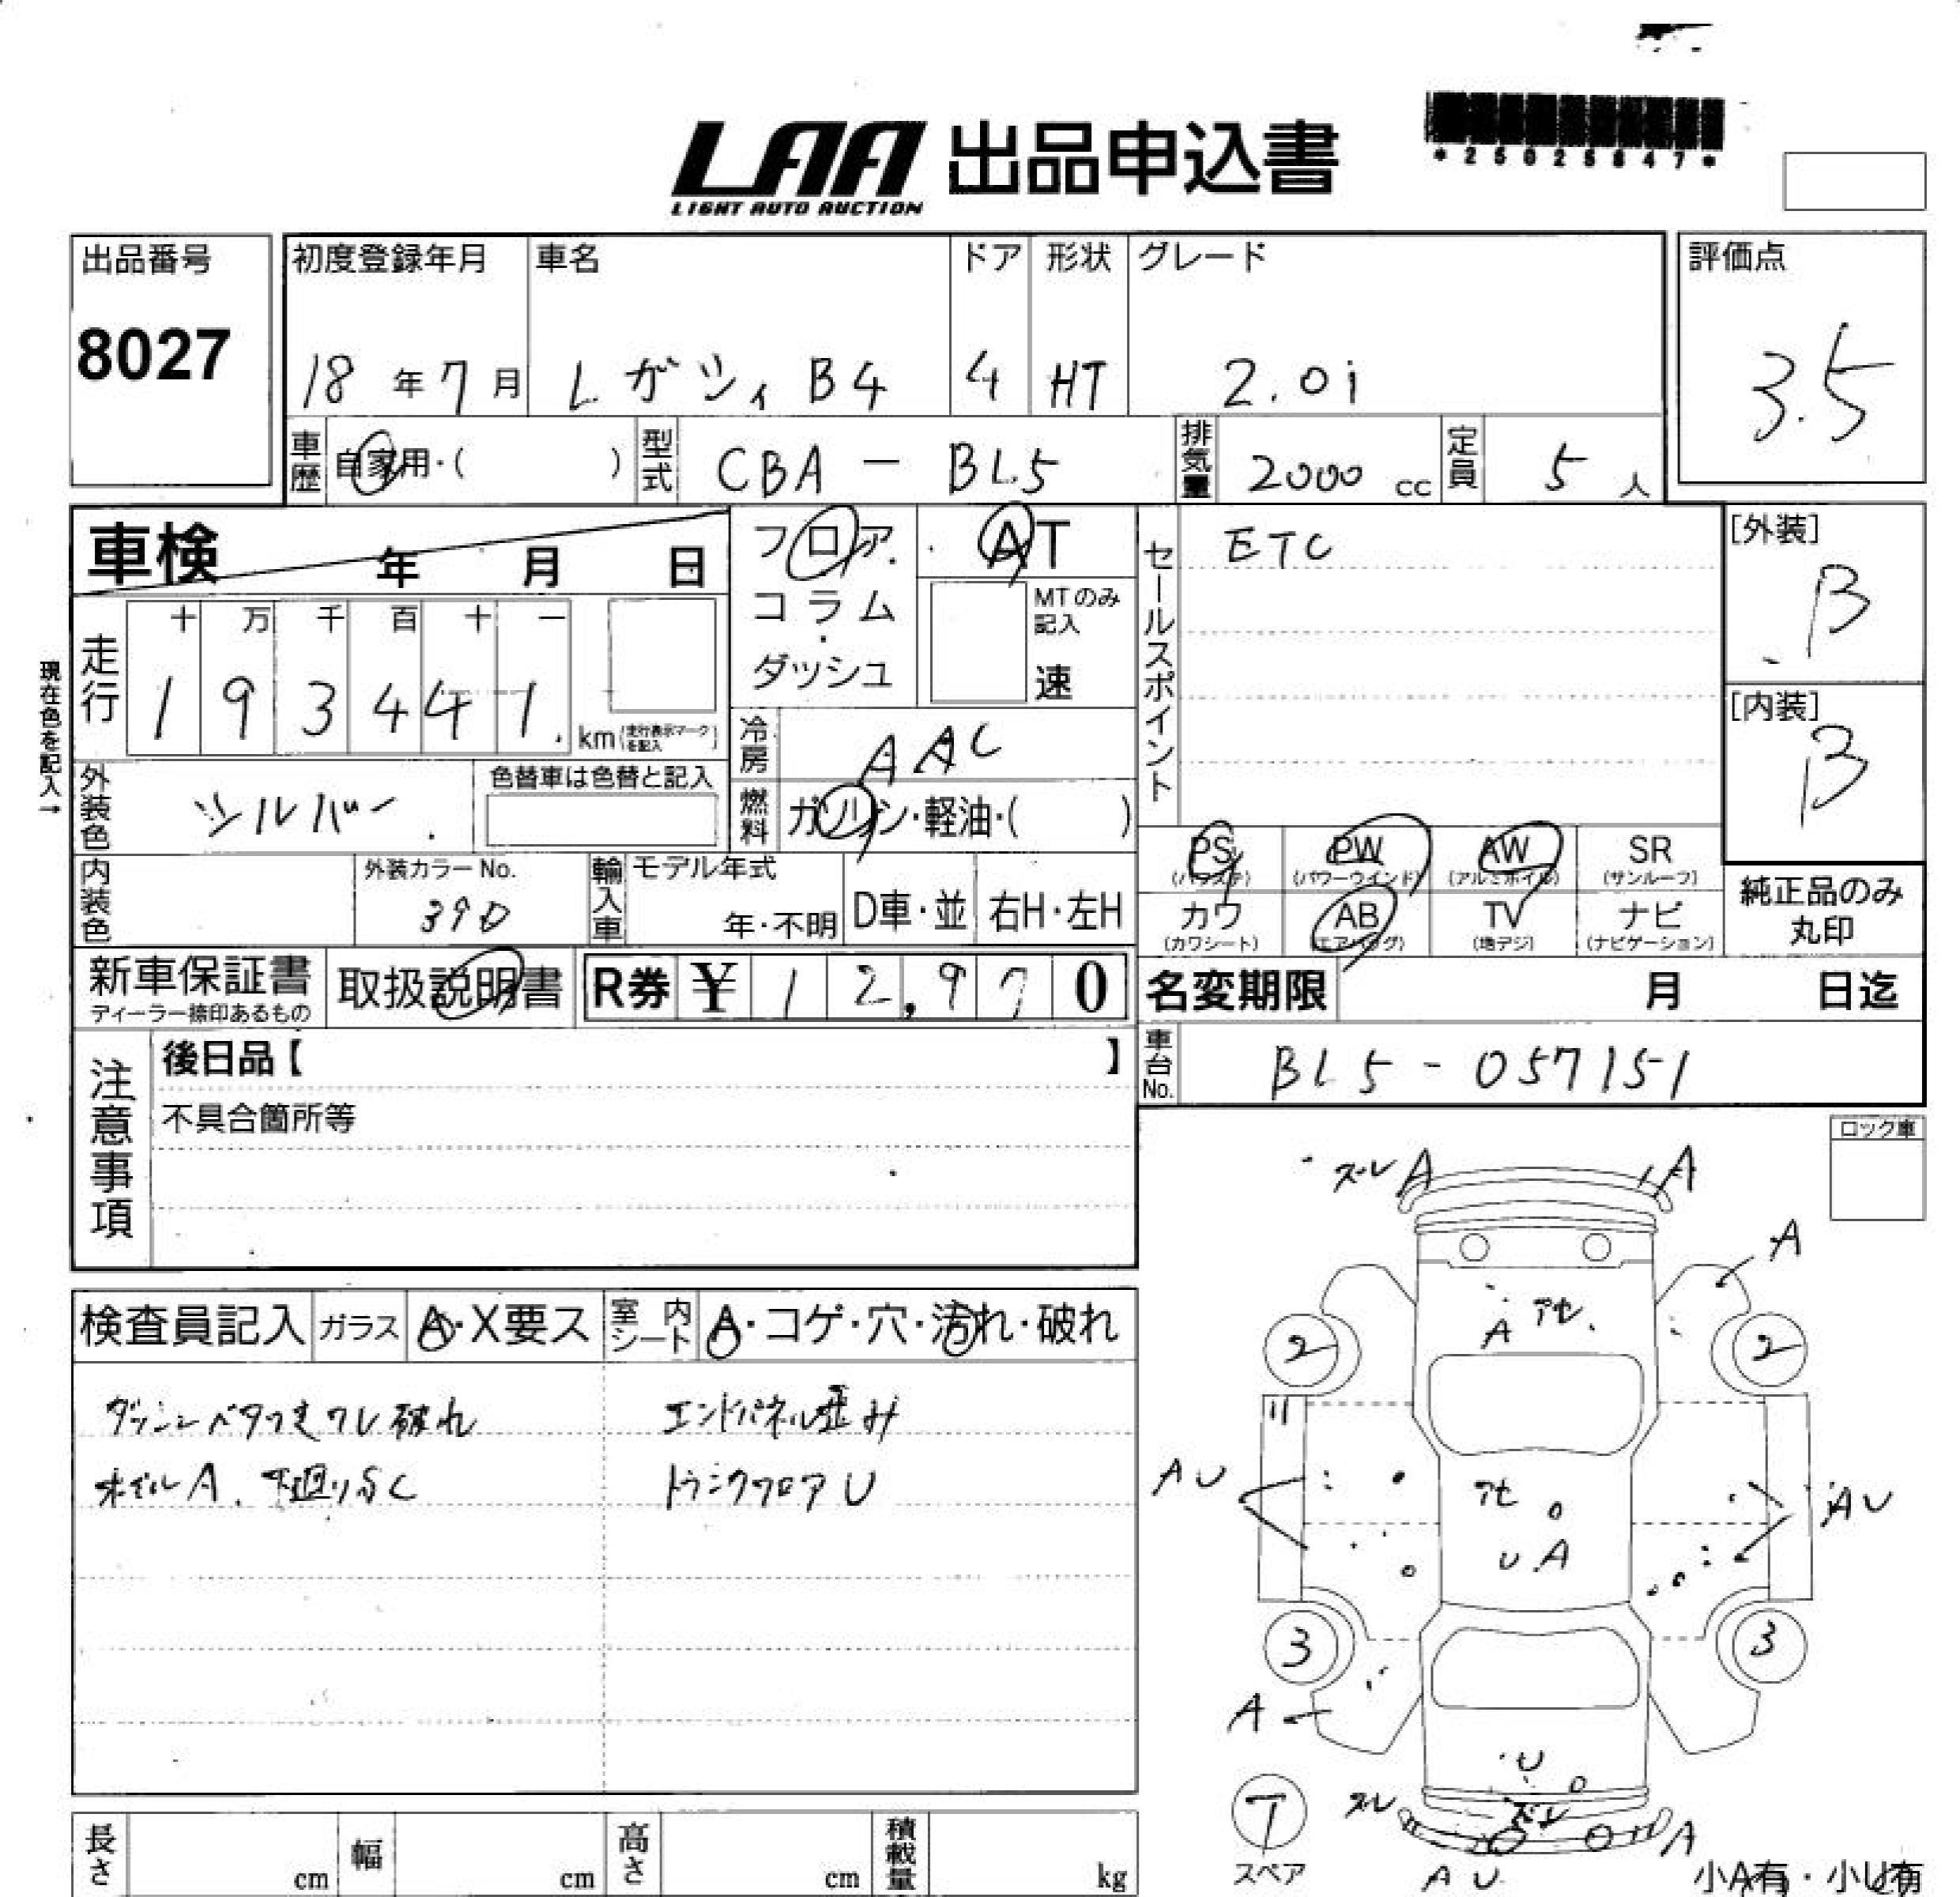 LAA 出品申込書
LIGHT AUTO AUCTION
*25025847*
出品番号
8027
初度登録年月
18年7月
車名
レガシィ B4
ドア
4
形状
HT
グレード
2.0i
評価点
3.5
車歴
自家用・( )
型式
CBA - BL5
排気量
2000 cc
定員
5 人
車検 年 月 日
フロア・
コラム
・
ダッシュ
AT
MTのみ記入
速
セールスポイント
ETC
[外装]
B
[内装]
B
現在色を記入→
走行
十 万 千 百 十 一
1 9 3 4 4 1
km(走行表示マークを記入)
冷房
AAC
外装色
シルバー
色替車は色替と記入
燃料
ガソリン・軽油・( )
PS PW AW SR
(パワステ) (パワーウインド) (アルミホイル) (サンルーフ)
カワ AB TV ナビ
(カワシート) (エアバッグ) (地デジ) (ナビゲーション)
純正品のみ
丸印
内装色
外装カラーNo.
39D
輸入車
モデル年式
年・不明
D車・並
右H・左H
新車保証書
ディーラー捺印あるもの
取扱説明書
R券 ¥ 12,970
名変期限 月 日迄
車台No.
BL5-057151
注意事項
後日品【 】
不具合箇所等
ロック車
検査員記入
ガラス
A・X要ス
室内シート
A・コゲ・穴・汚れ・破れ
ダッシュベタつきワレ破れ
エンドパネル歪み
ホイルA.下廻りS C
トランクフロアU
ズレ A
A
A
アセ
A
2
2
AU
アセ
UA
AU
3
3
A
U
T
スペア
ズレ
ズレ
A
AU
小A有・小U有
長さ cm
幅 cm
高さ cm
積載量 kg